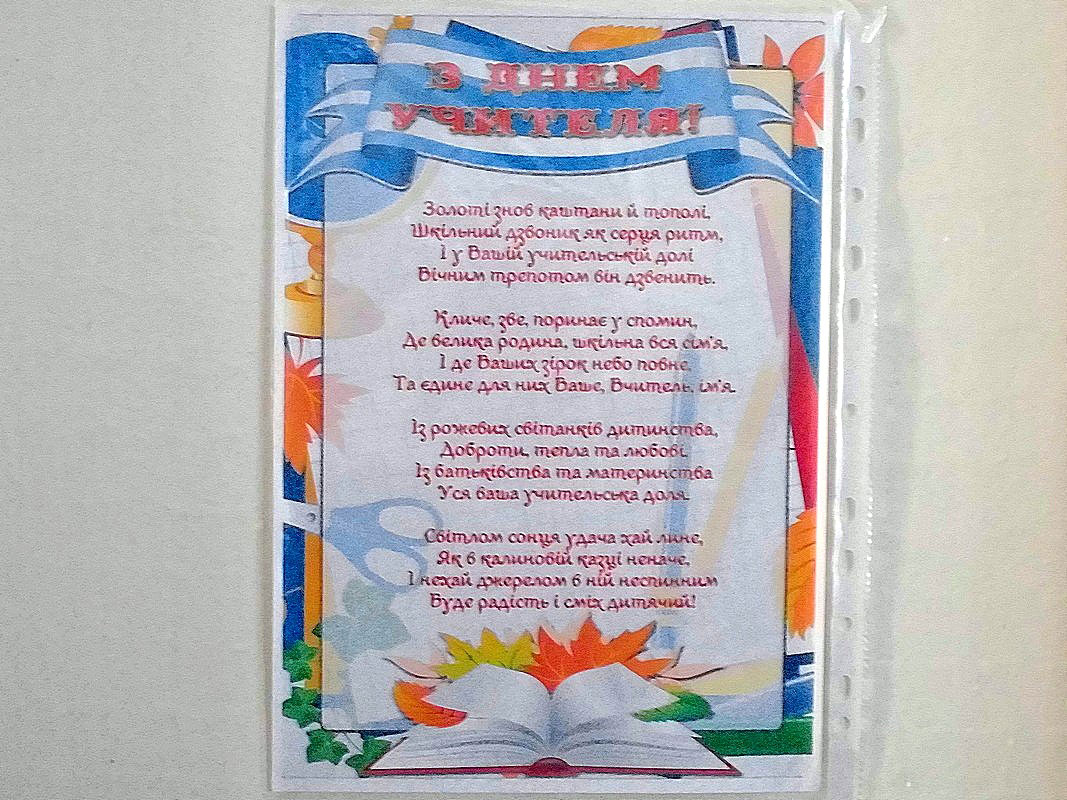 З ДНЕМ
УЧИТЕЛЯ!
Золоті знов каштани й тополі,
Шкільний дзвоник як серця ритм,
І у Вашій учительській долі
Вічним трепотом він дзвенить.
Кличе, зве, поринає у спомин,
Де велика родина, шкільна вся сім'я,
І де Ваших зірок небо повне,
Та єдине для них Ваше, Вчитель, ім'я.
Із рожевих світанків дитинства,
Доброти, тепла та любові,
Із батьківства та материнства
Уся ваша учительська доля.
Світлом сонця удача хай лине,
Як в калиновій казці неначе,
І нехай джерелом в ній неспинним
Буде радість і сміх дитячий!